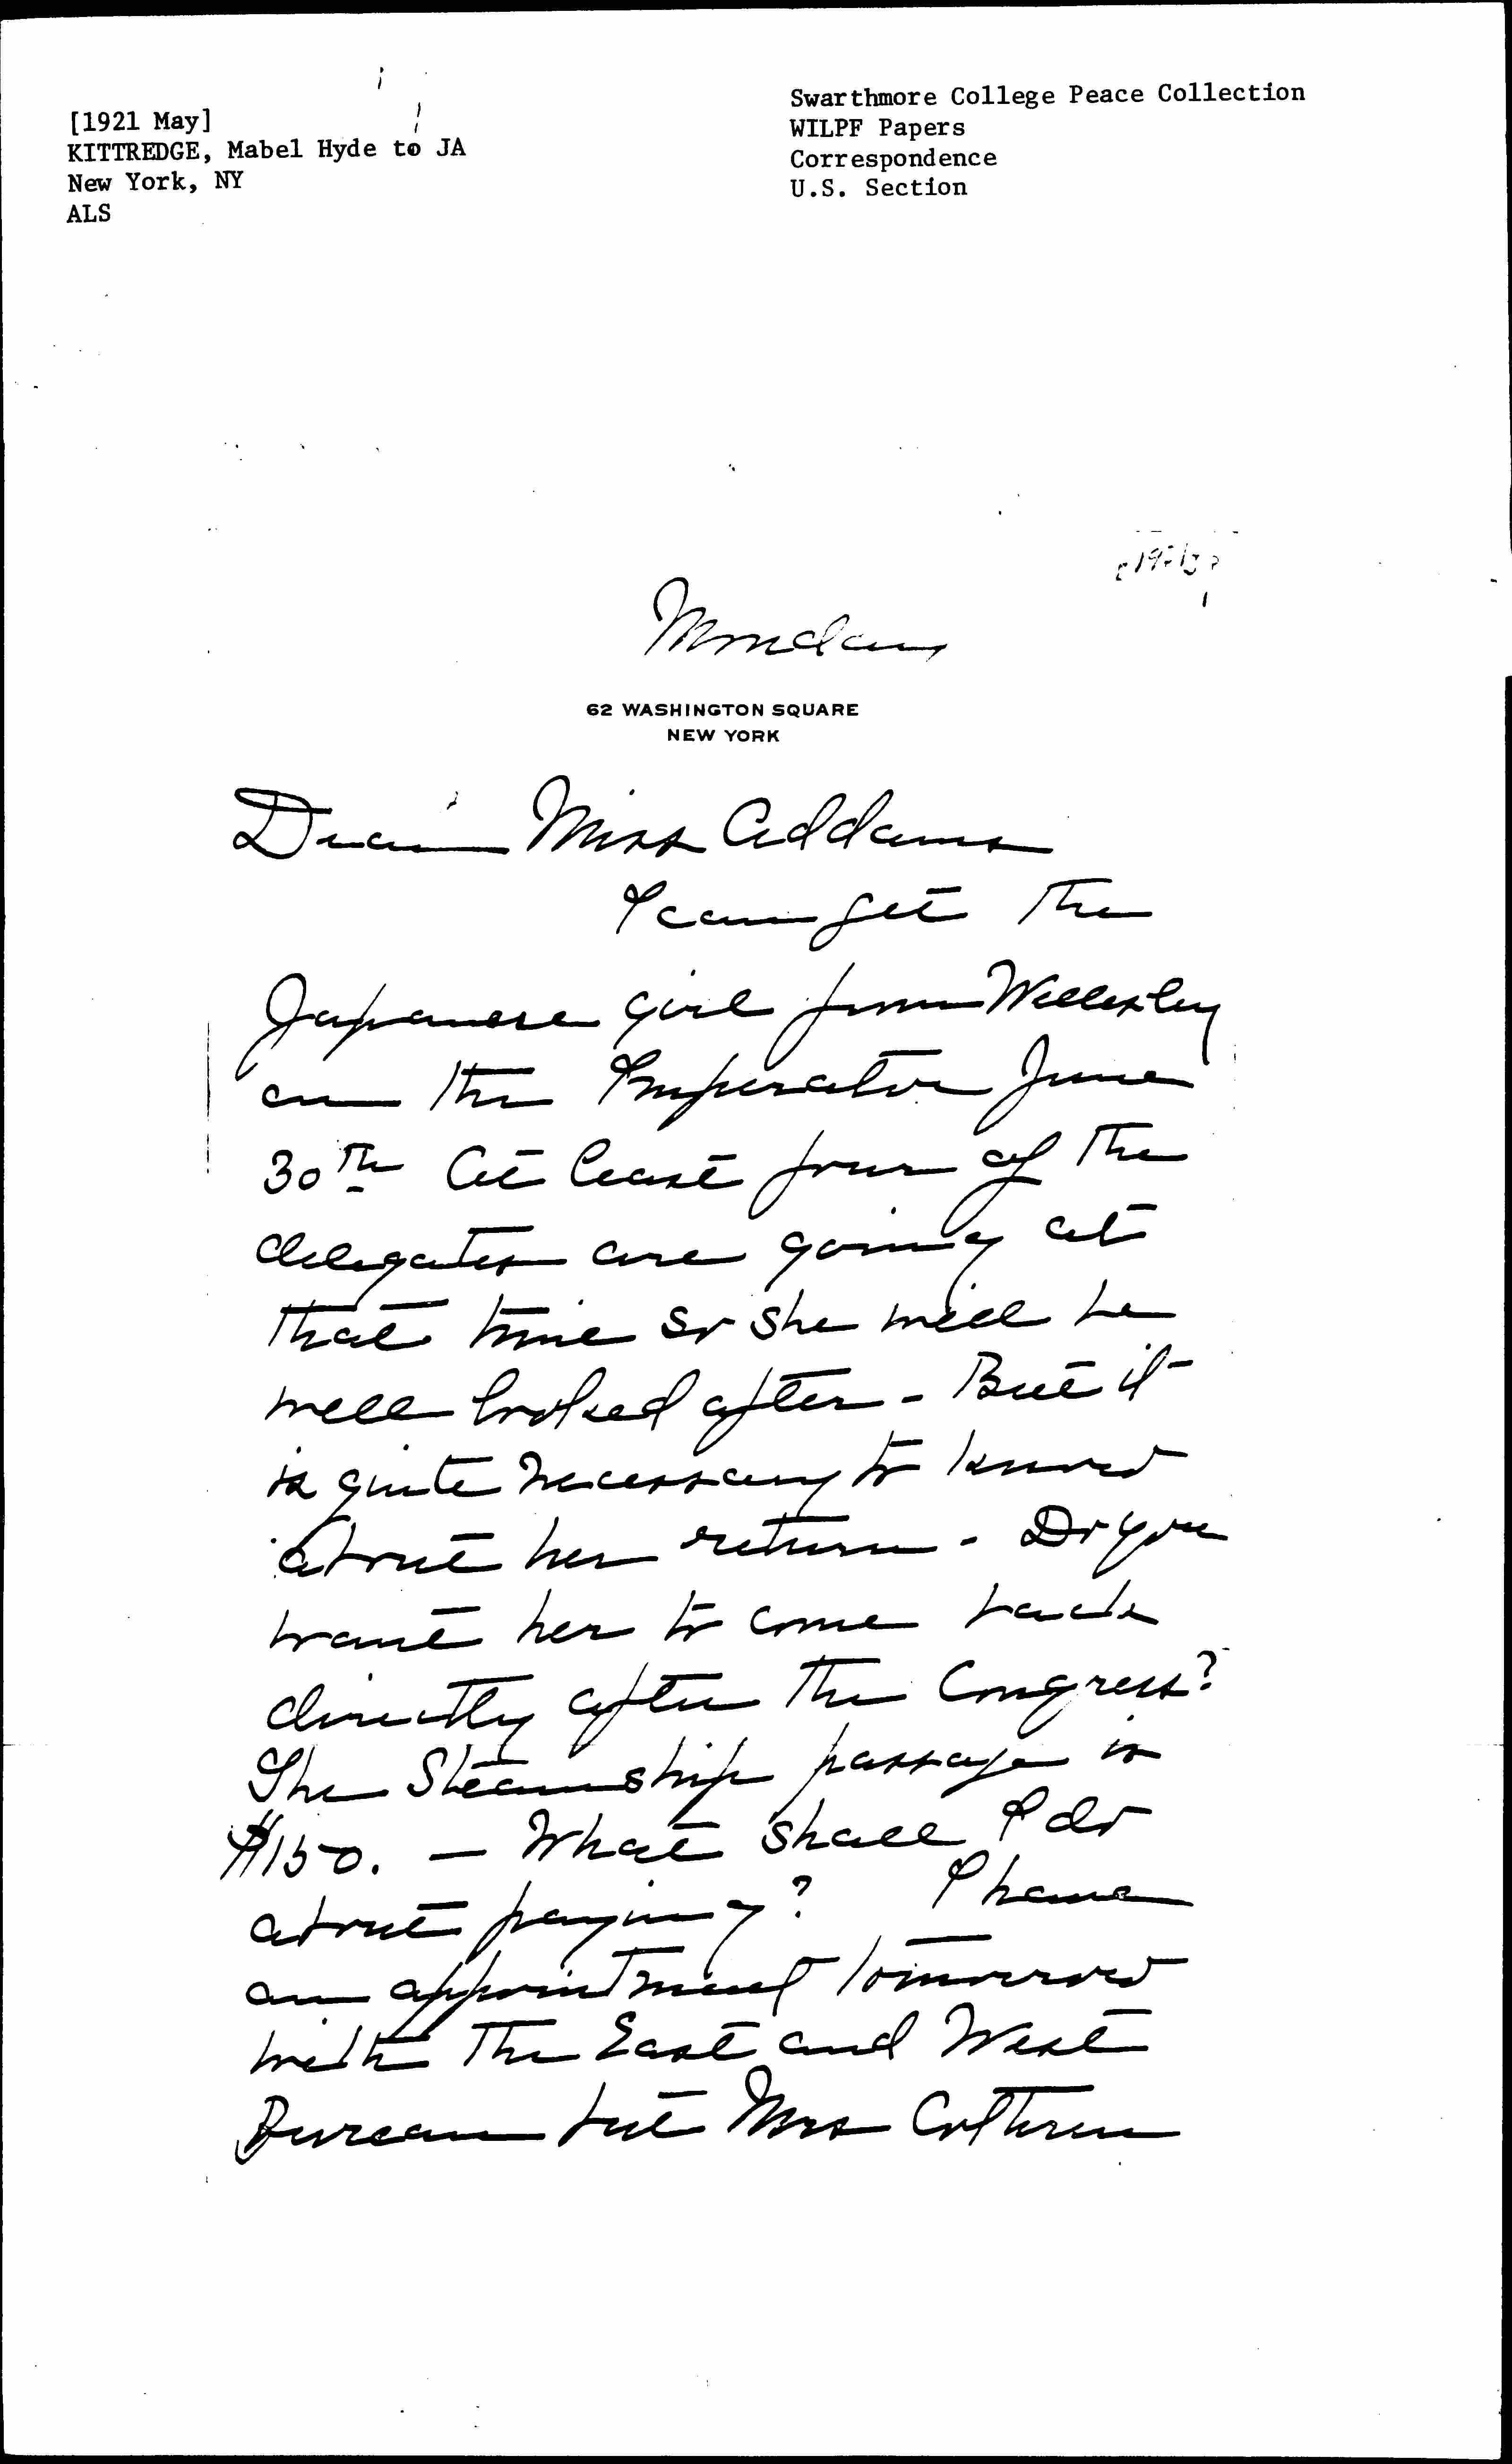 [1921 May]
KITTREDGE, Mabel Hyde to JA
New York, NY
ALS
Swarthmore College Peace Collection
WILPF Papers
Correspondence
U.S. Section
Monday
62 WASHINGTON SQUARE
NEW YORK
Dear Miss Addams
I can get the
Japanese girl from Wellesley
on the Imperator June
30th At least four of the
delegates are going at
that time so she will be
well looked after - But it
is quite necessary to know
about her return. Do you
want her to come back
directly after the Congress?
The Steamship passage is
$150. — What shall I do
about paying? I have
an appointment tomorrow
with the East and West
Bureau but Mrs Cothren